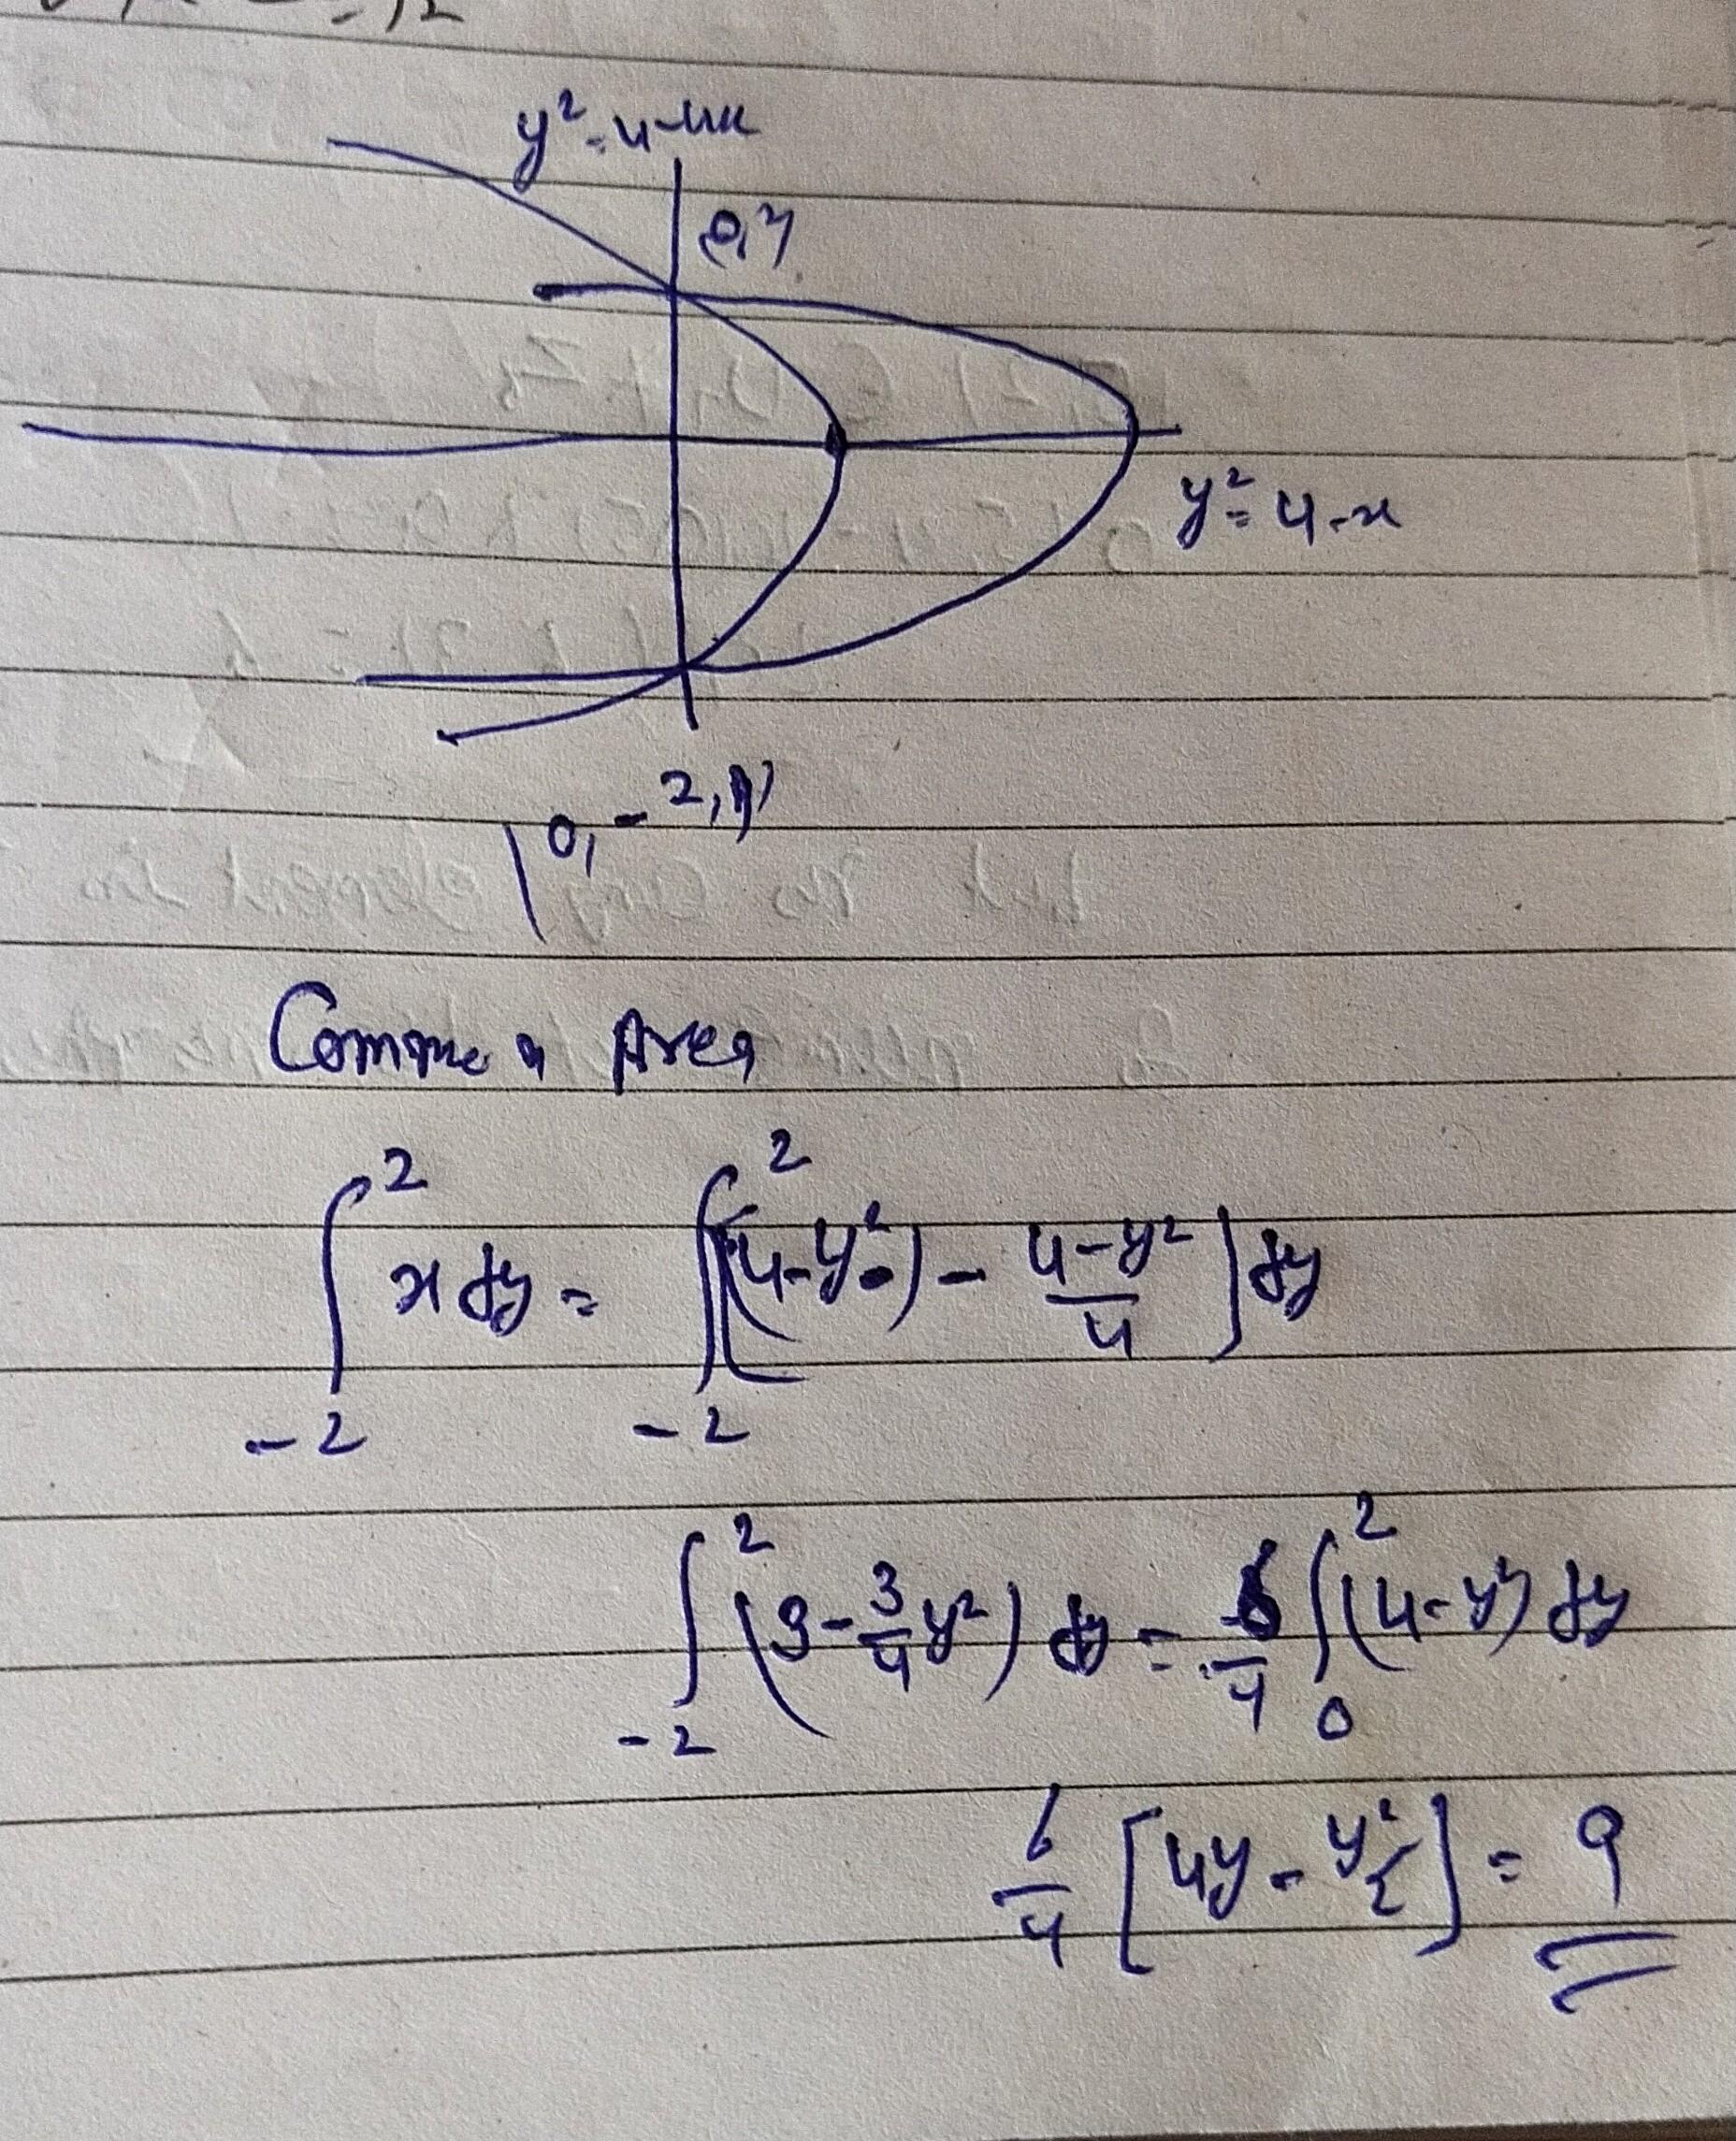 y² = 4-4x
0,2
y² = 4-x
(0,-2,)
Common Area
∫_{-2}^{2} x dy = ∫_{-2}^{2} [(4-y²) - \frac{4-y²}{4}] dy
∫_{-2}^{2} (3 - \frac{3}{4}y²) dy = \frac{6}{4} ∫_{0}^{2} (4-y²) dy
\frac{6}{4} [4y - \frac{y²}{2}] = 9